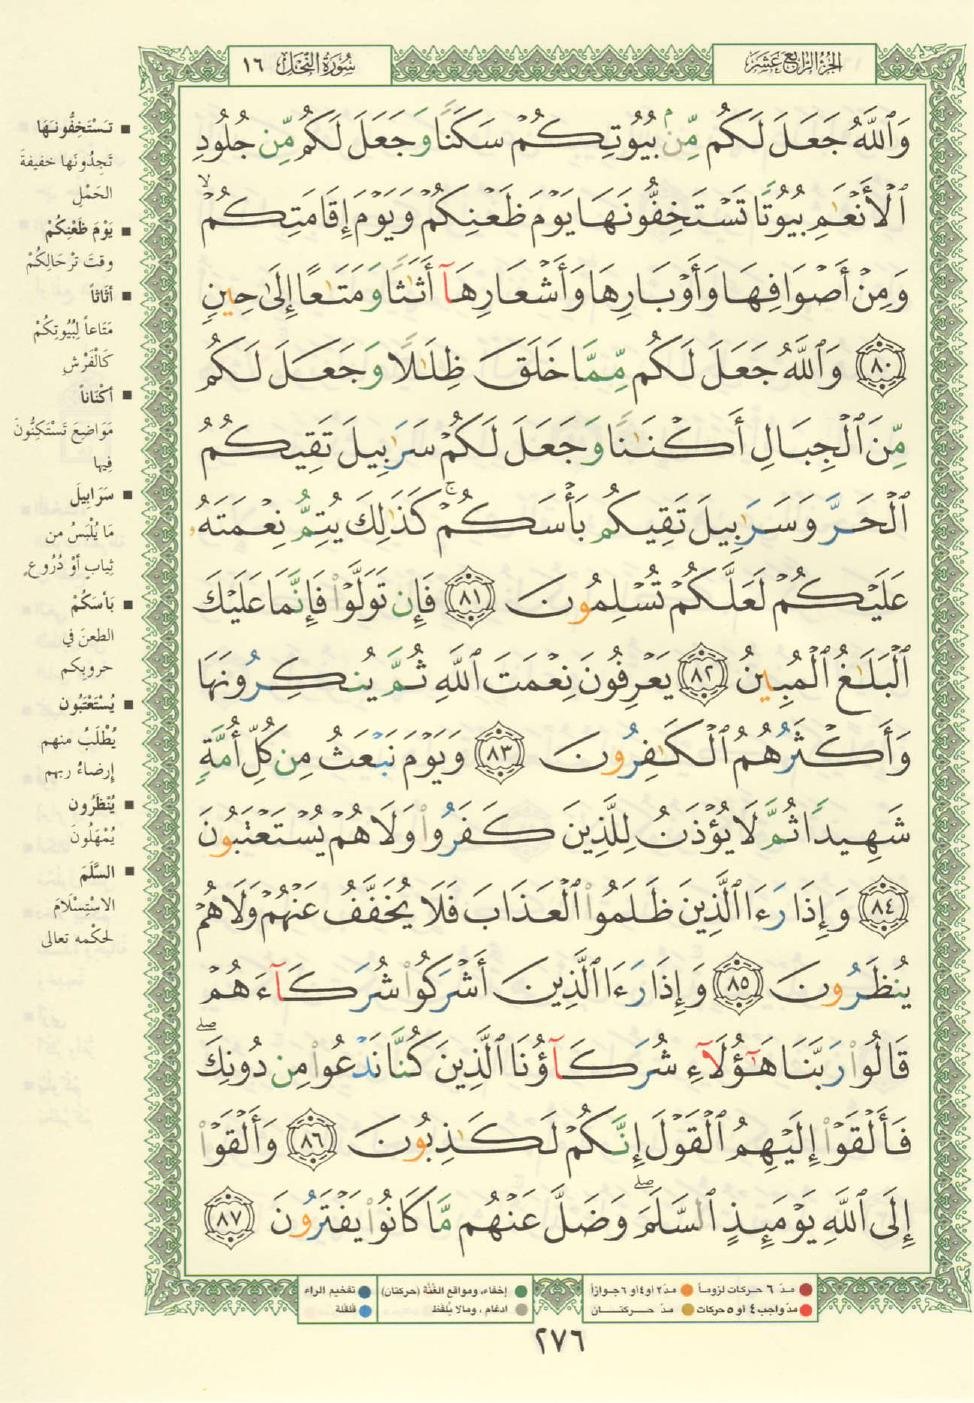 الجزء الرابع عشر
سُورَةُ النَّحْل ١٦
وَٱللَّهُ جَعَلَ لَكُم مِّنۢ بُيُوتِكُمْ سَكَنًا وَجَعَلَ لَكُم مِّن جُلُودِ
ٱلْأَنْعَٰمِ بُيُوتًا تَسْتَخِفُّونَهَا يَوْمَ ظَعْنِكُمْ وَيَوْمَ إِقَامَتِكُمْ ۙ
وَمِنْ أَصْوَافِهَا وَأَوْبَارِهَا وَأَشْعَارِهَآ أَثَٰثًا وَمَتَٰعًا إِلَىٰ حِينٍ
٨٠ وَٱللَّهُ جَعَلَ لَكُم مِّمَّا خَلَقَ ظِلَٰلًا وَجَعَلَ لَكُم
مِّنَ ٱلْجِبَالِ أَكْنَٰنًا وَجَعَلَ لَكُمْ سَرَٰبِيلَ تَقِيكُمُ
ٱلْحَرَّ وَسَرَٰبِيلَ تَقِيكُم بَأْسَكُمْ ۚ كَذَٰلِكَ يُتِمُّ نِعْمَتَهُۥ
عَلَيْكُمْ لَعَلَّكُمْ تُسْلِمُونَ ٨١ فَإِن تَوَلَّوْا۟ فَإِنَّمَا عَلَيْكَ
ٱلْبَلَٰغُ ٱلْمُبِينُ ٨٢ يَعْرِفُونَ نِعْمَتَ ٱللَّهِ ثُمَّ يُنكِرُونَهَا
وَأَكْثَرُهُمُ ٱلْكَٰفِرُونَ ٨٣ وَيَوْمَ نَبْعَثُ مِن كُلِّ أُمَّةٍ
شَهِيدًا ثُمَّ لَا يُؤْذَنُ لِلَّذِينَ كَفَرُوا۟ وَلَا هُمْ يُسْتَعْتَبُونَ
٨٤ وَإِذَا رَءَا ٱلَّذِينَ ظَلَمُوا۟ ٱلْعَذَابَ فَلَا يُخَفَّفُ عَنْهُمْ وَلَا هُمْ
يُنظَرُونَ ٨٥ وَإِذَا رَءَا ٱلَّذِينَ أَشْرَكُوا۟ شُرَكَآءَهُمْ
قَالُوا۟ رَبَّنَا هَٰٓؤُلَآءِ شُرَكَآؤُنَا ٱلَّذِينَ كُنَّا نَدْعُوا۟ مِن دُونِكَ ۖ
فَأَلْقَوْا۟ إِلَيْهِمُ ٱلْقَوْلَ إِنَّكُمْ لَكَٰذِبُونَ ٨٦ وَأَلْقَوْا۟
إِلَى ٱللَّهِ يَوْمَئِذٍ ٱلسَّلَمَ ۖ وَضَلَّ عَنْهُم مَّا كَانُوا۟ يَفْتَرُونَ ٨٧
■ تَسْتَخِفُّونَهَا
تَجِدُونَها خفيفةَ
الحَمْلِ
■ يَوْمَ ظَعْنِكُمْ
وقتَ تَرْحَالِكُمْ
■ أثَاثاً
مَتَاعاً لِبُيُوتِكُمْ
كَالْفَرْشِ
■ أكْنَاناً
مَوَاضِعَ تَسْتَكِنُّونَ
فِيها
■ سَرَابِيلَ
مَا يُلْبَسُ من
ثِيابٍ أوْ دُرُوعٍ
■ بَأسَكُمْ
الطعنَ في
حروبكم
■ يُسْتَعْتَبُون
يُطْلَبُ منهم
إرضاءُ ربهم
■ يُنْظَرُون
يُمْهَلُونَ
■ السَّلَمَ
الاسْتِسْلامَ
لحُكْمه تعالى
مدّ ٦ حركات لزوماً مدّ ٢ او ٤ او ٦ جوازاً
مدّ واجب ٤ أو ٥ حركات مدّ حركتان
إخفاء، ومواقع الغُنَّة (حركتان)
ادغام ، ومالا يُلفَظ
تفخيم الراء
قلقلة
٢٧٦